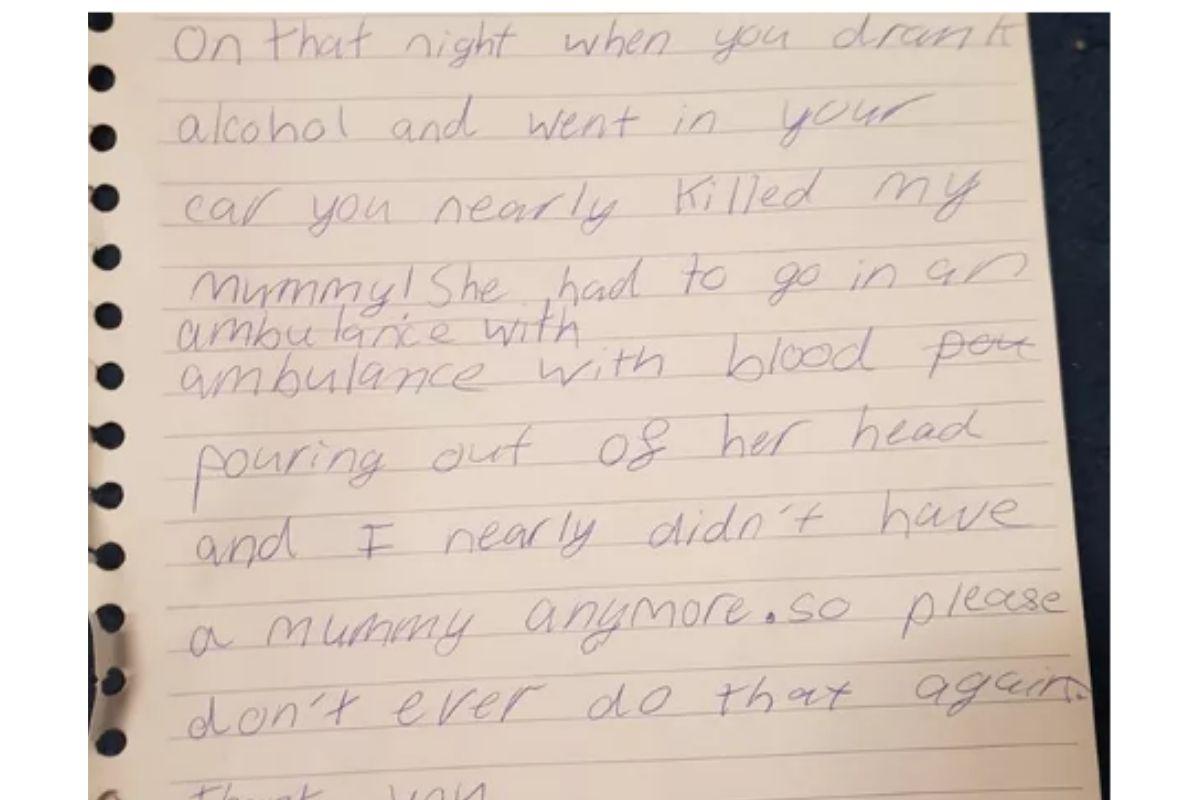 On that night when you drank
alcohol and went in your
car you nearly killed my
mummy! She had to go in an
ambulance with
ambulance with blood pou
pouring out of her head
and I nearly didn't have
a mummy anymore. so please
don't ever do that again.
Thank you